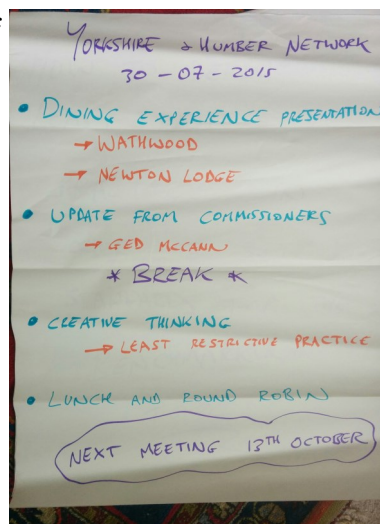 YORKSHIRE & HUMBER NETWORK
30-07-2015
• DINING EXPERIENCE PRESENTATION
→ WATHWOOD
→ NEWTON LODGE
• UPDATE FROM COMMISSIONERS
→ GED McCANN
* BREAK *
• CREATIVE THINKING
→ LEAST RESTRICTIVE PRACTICE
• LUNCH AND ROUND ROBIN
NEXT MEETING 13TH OCTOBER